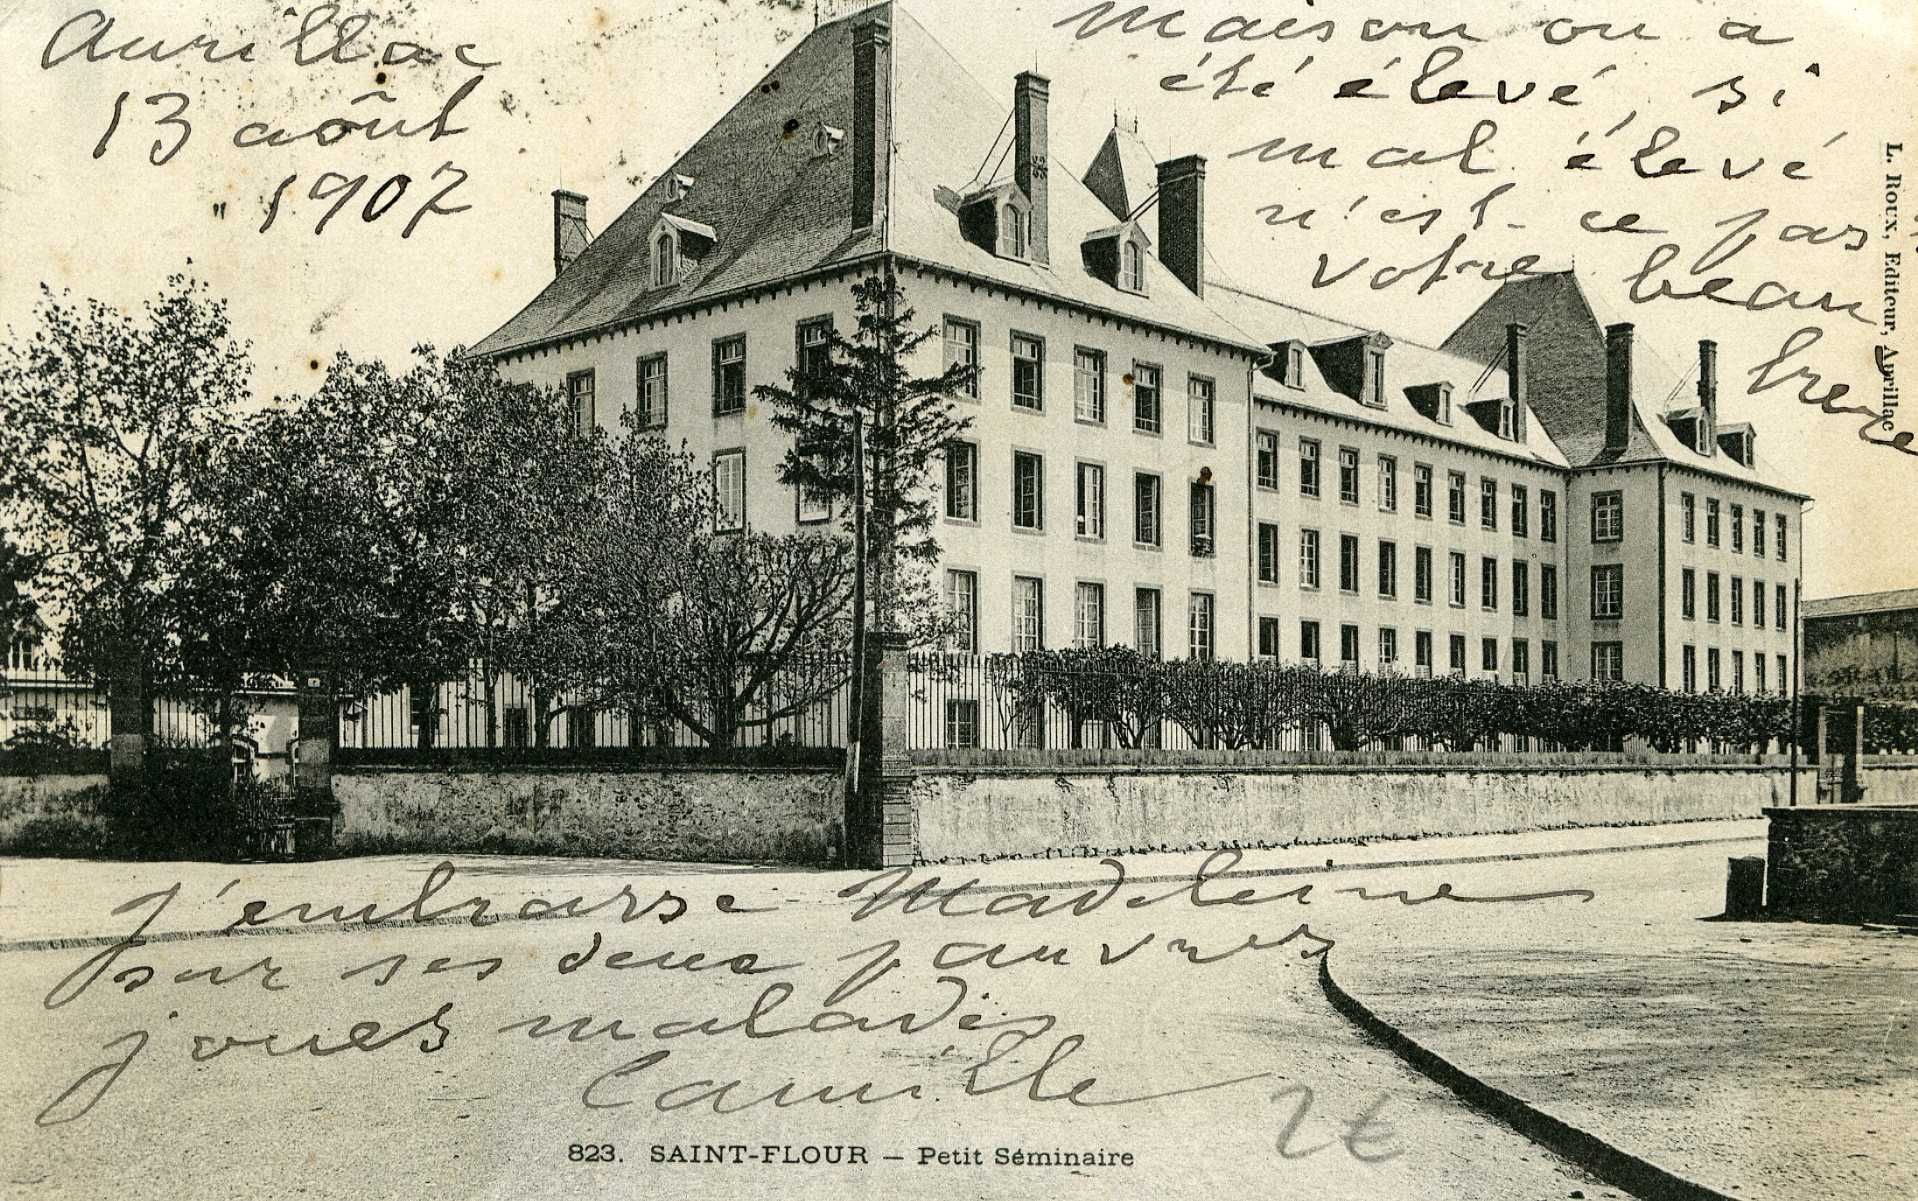 Aurillac
13 août
1907
maison ou a
été élevé, si
mal élevé
n'est-ce pas
votre beau
frere
L. Roux, Editeur, Aurillac
J'embrasse Madeleine
sur ses deux pauvres
joues malades
Camille
2€
823. SAINT-FLOUR — Petit Séminaire